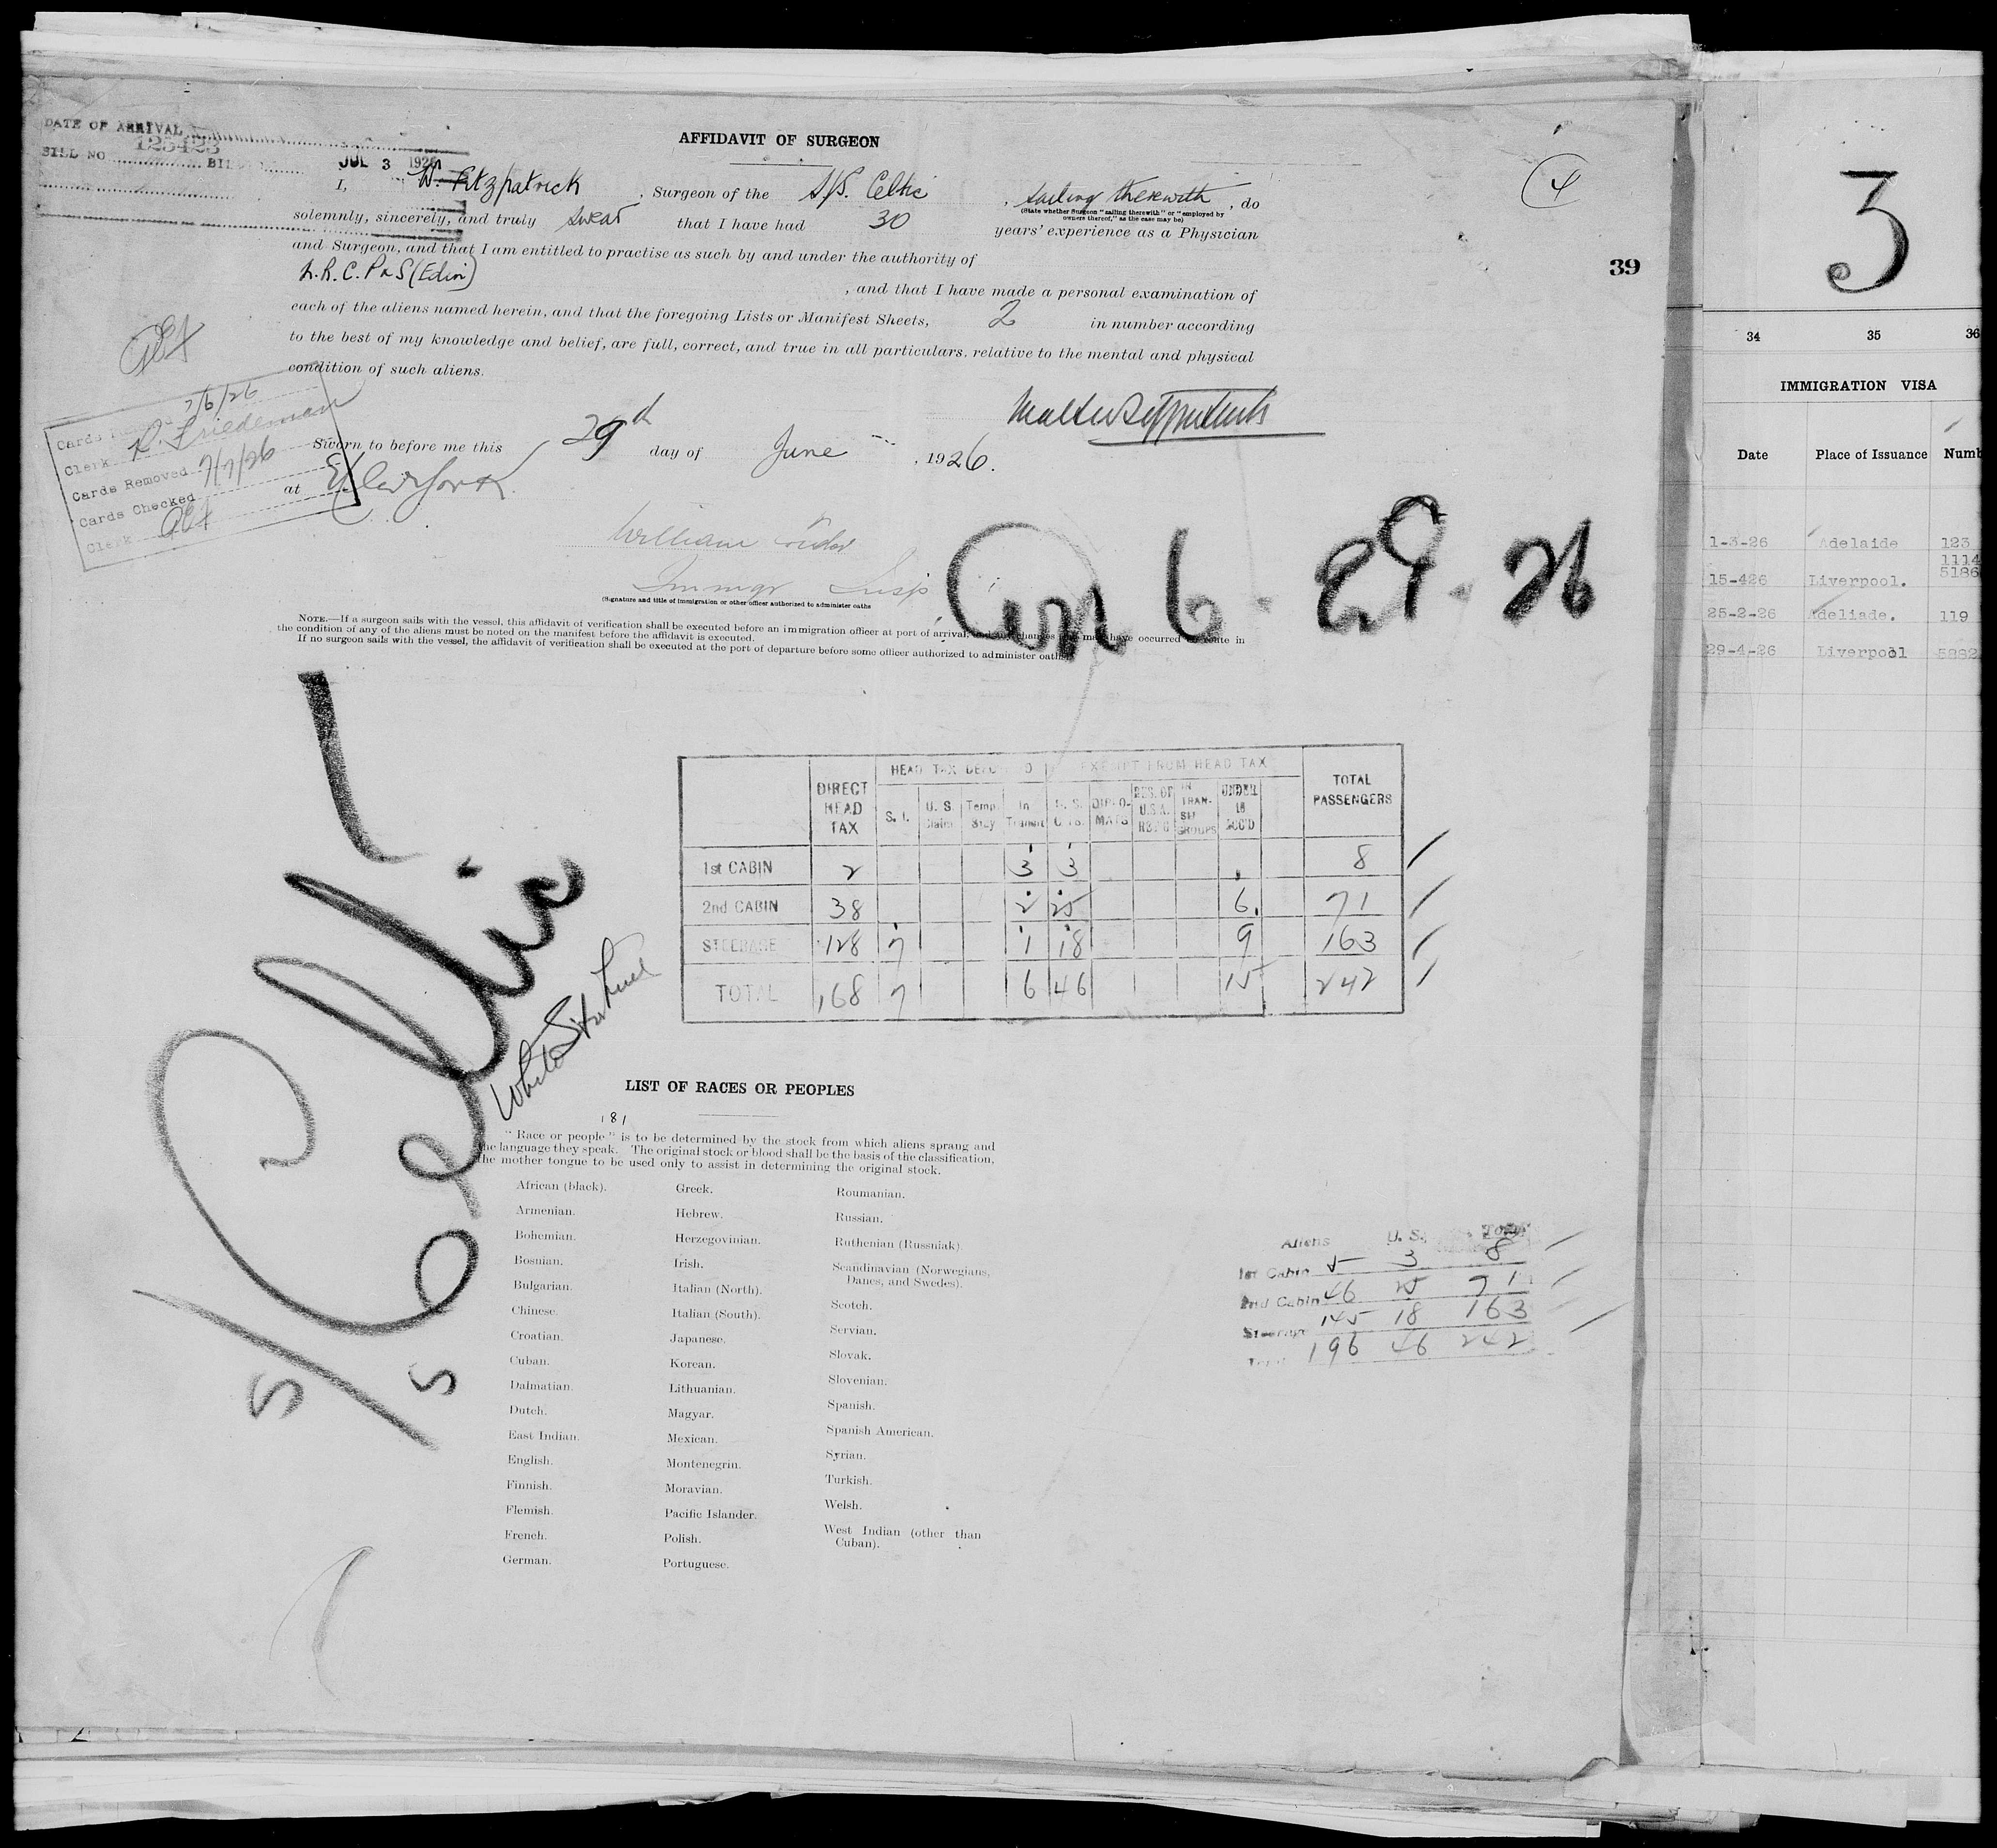 DATE OF ARRIVAL
BILL NO 125423
JUL 3 1926
AFFIDAVIT OF SURGEON
4
39
I, W. Fitzpatrick, Surgeon of the S/S. Celtic, sailing therewith, do
(State whether Surgeon "sailing therewith" or "employed by
owners thereof," as the case may be)
solemnly, sincerely, and truly swear that I have had 30 years' experience as a Physician
and Surgeon, and that I am entitled to practise as such by and under the authority of
L.R.C.P & S (Edin) , and that I have made a personal examination of
each of the aliens named herein, and that the foregoing Lists or Manifest Sheets, 2 in number according
to the best of my knowledge and belief, are full, correct, and true in all particulars. relative to the mental and physical
condition of such aliens.
7/6/26
Clerk D. Friedeman
Cards Removed 7/7/26
Cards Checked
Clerk
Sworn to before me this 29th day of June, 1926.
at New York
William
Immgr Insp
(Signature and title of immigration or other officer authorized to administer oaths
Arr 6 - 29 - 26
NOTE.—If a surgeon sails with the vessel, this affidavit of verification shall be executed before an immigration officer at port of arrival, and any changes may have occurred en route in
the condition of any of the aliens must be noted on the manifest before the affidavit is executed.
If no surgeon sails with the vessel, the affidavit of verification shall be executed at the port of departure before some officer authorized to administer oaths.
S/S Celtic
White Star Line
DIRECT HEAD TAX
HEAD TAX DEPO
EXEMPT FROM HEAD TAX
TOTAL PASSENGERS
S. I.
U. S. Claim
Temp. Stay
In Transit
U. S. CITS.
DIPLOMATS
RES. OF U.S.A.
IN TRANSIT GROUPS
UNDER 16 ACC'D
1st CABIN 2 3 3 8
2nd CABIN 38 2 25 6 71
STEERAGE 128 7 1 18 9 163
TOTAL 168 7 6 46 15 242
LIST OF RACES OR PEOPLES
181
"Race or people" is to be determined by the stock from which aliens sprang and
the language they speak. The original stock or blood shall be the basis of the classification,
the mother tongue to be used only to assist in determining the original stock.
African (black).
Armenian.
Bohemian.
Bosnian.
Bulgarian.
Chinese.
Croatian.
Cuban.
Dalmatian.
Dutch.
East Indian.
English.
Finnish.
Flemish.
French.
German.
Greek.
Hebrew.
Herzegovinian.
Irish.
Italian (North).
Italian (South).
Japanese.
Korean.
Lithuanian.
Magyar.
Mexican.
Montenegrin.
Moravian.
Pacific Islander.
Polish.
Portuguese.
Roumanian.
Russian.
Ruthenian (Russniak).
Scandinavian (Norwegians,
Danes, and Swedes).
Scotch.
Servian.
Slovak.
Slovenian.
Spanish.
Spanish American.
Syrian.
Turkish.
Welsh.
West Indian (other than
Cuban).
Aliens U. S. Total
1st Cabin 5 3 8
2nd Cabin 46 25 71
Steerage 145 18 163
Total 196 46 242
3
34 35 36
IMMIGRATION VISA
Date Place of Issuance Numb
1-3-26 Adelaide 123
1114
15-426 Liverpool. 5186
25-2-26 Adeliade. 119
29-4-26 Liverpool 5882